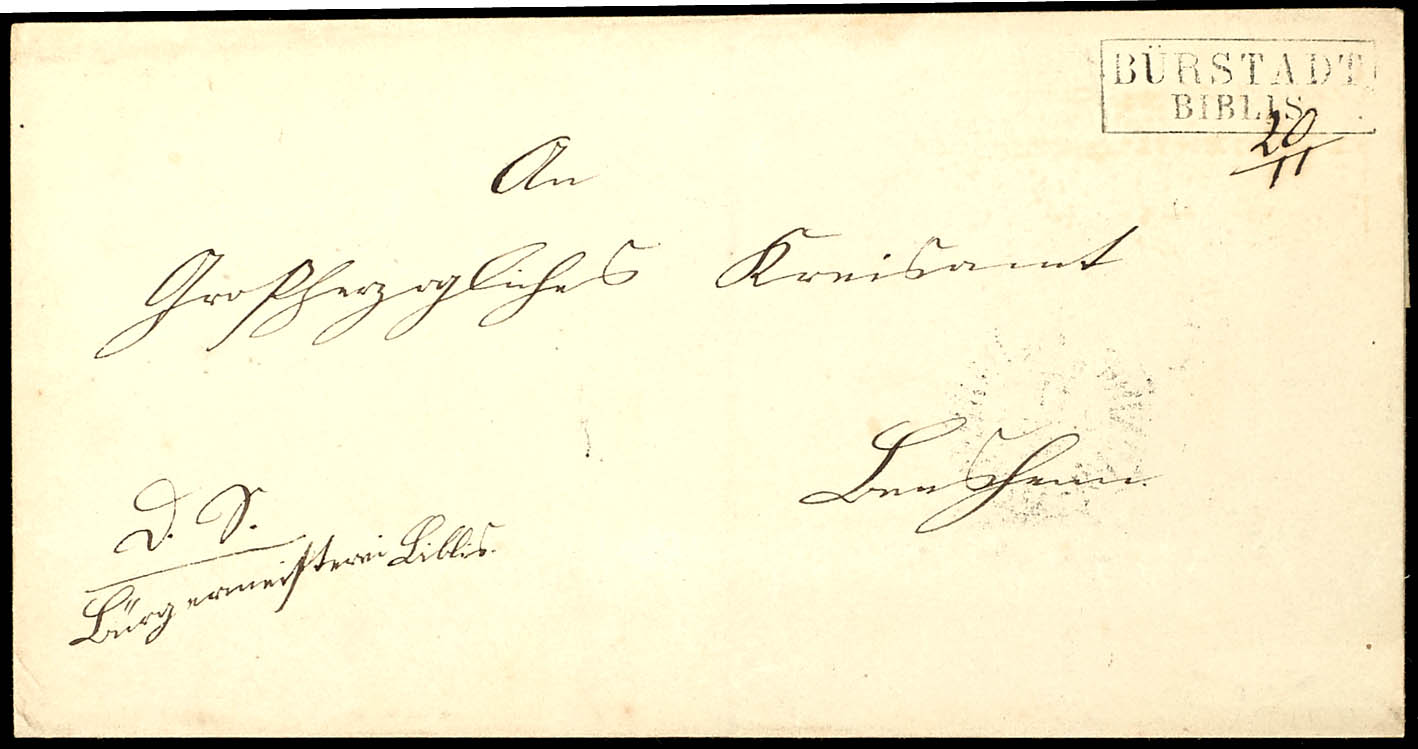 BÜRSTADT
BIBLIS
20/11
An
Großherzogliches Kreisamt
Bensheim.
D. S.
Bürgermeisterei Biblis.